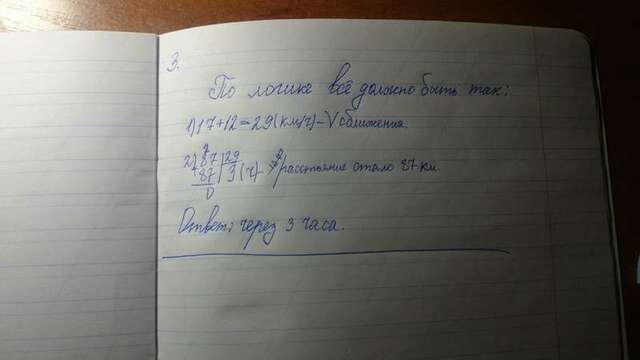 3.
По логике всё должно быть так:
1) 17+12=29(км/ч)-V сближения.
2) 87 29
87 3(ч) расстояние стало 87 км.
0
Ответ: через 3 часа.